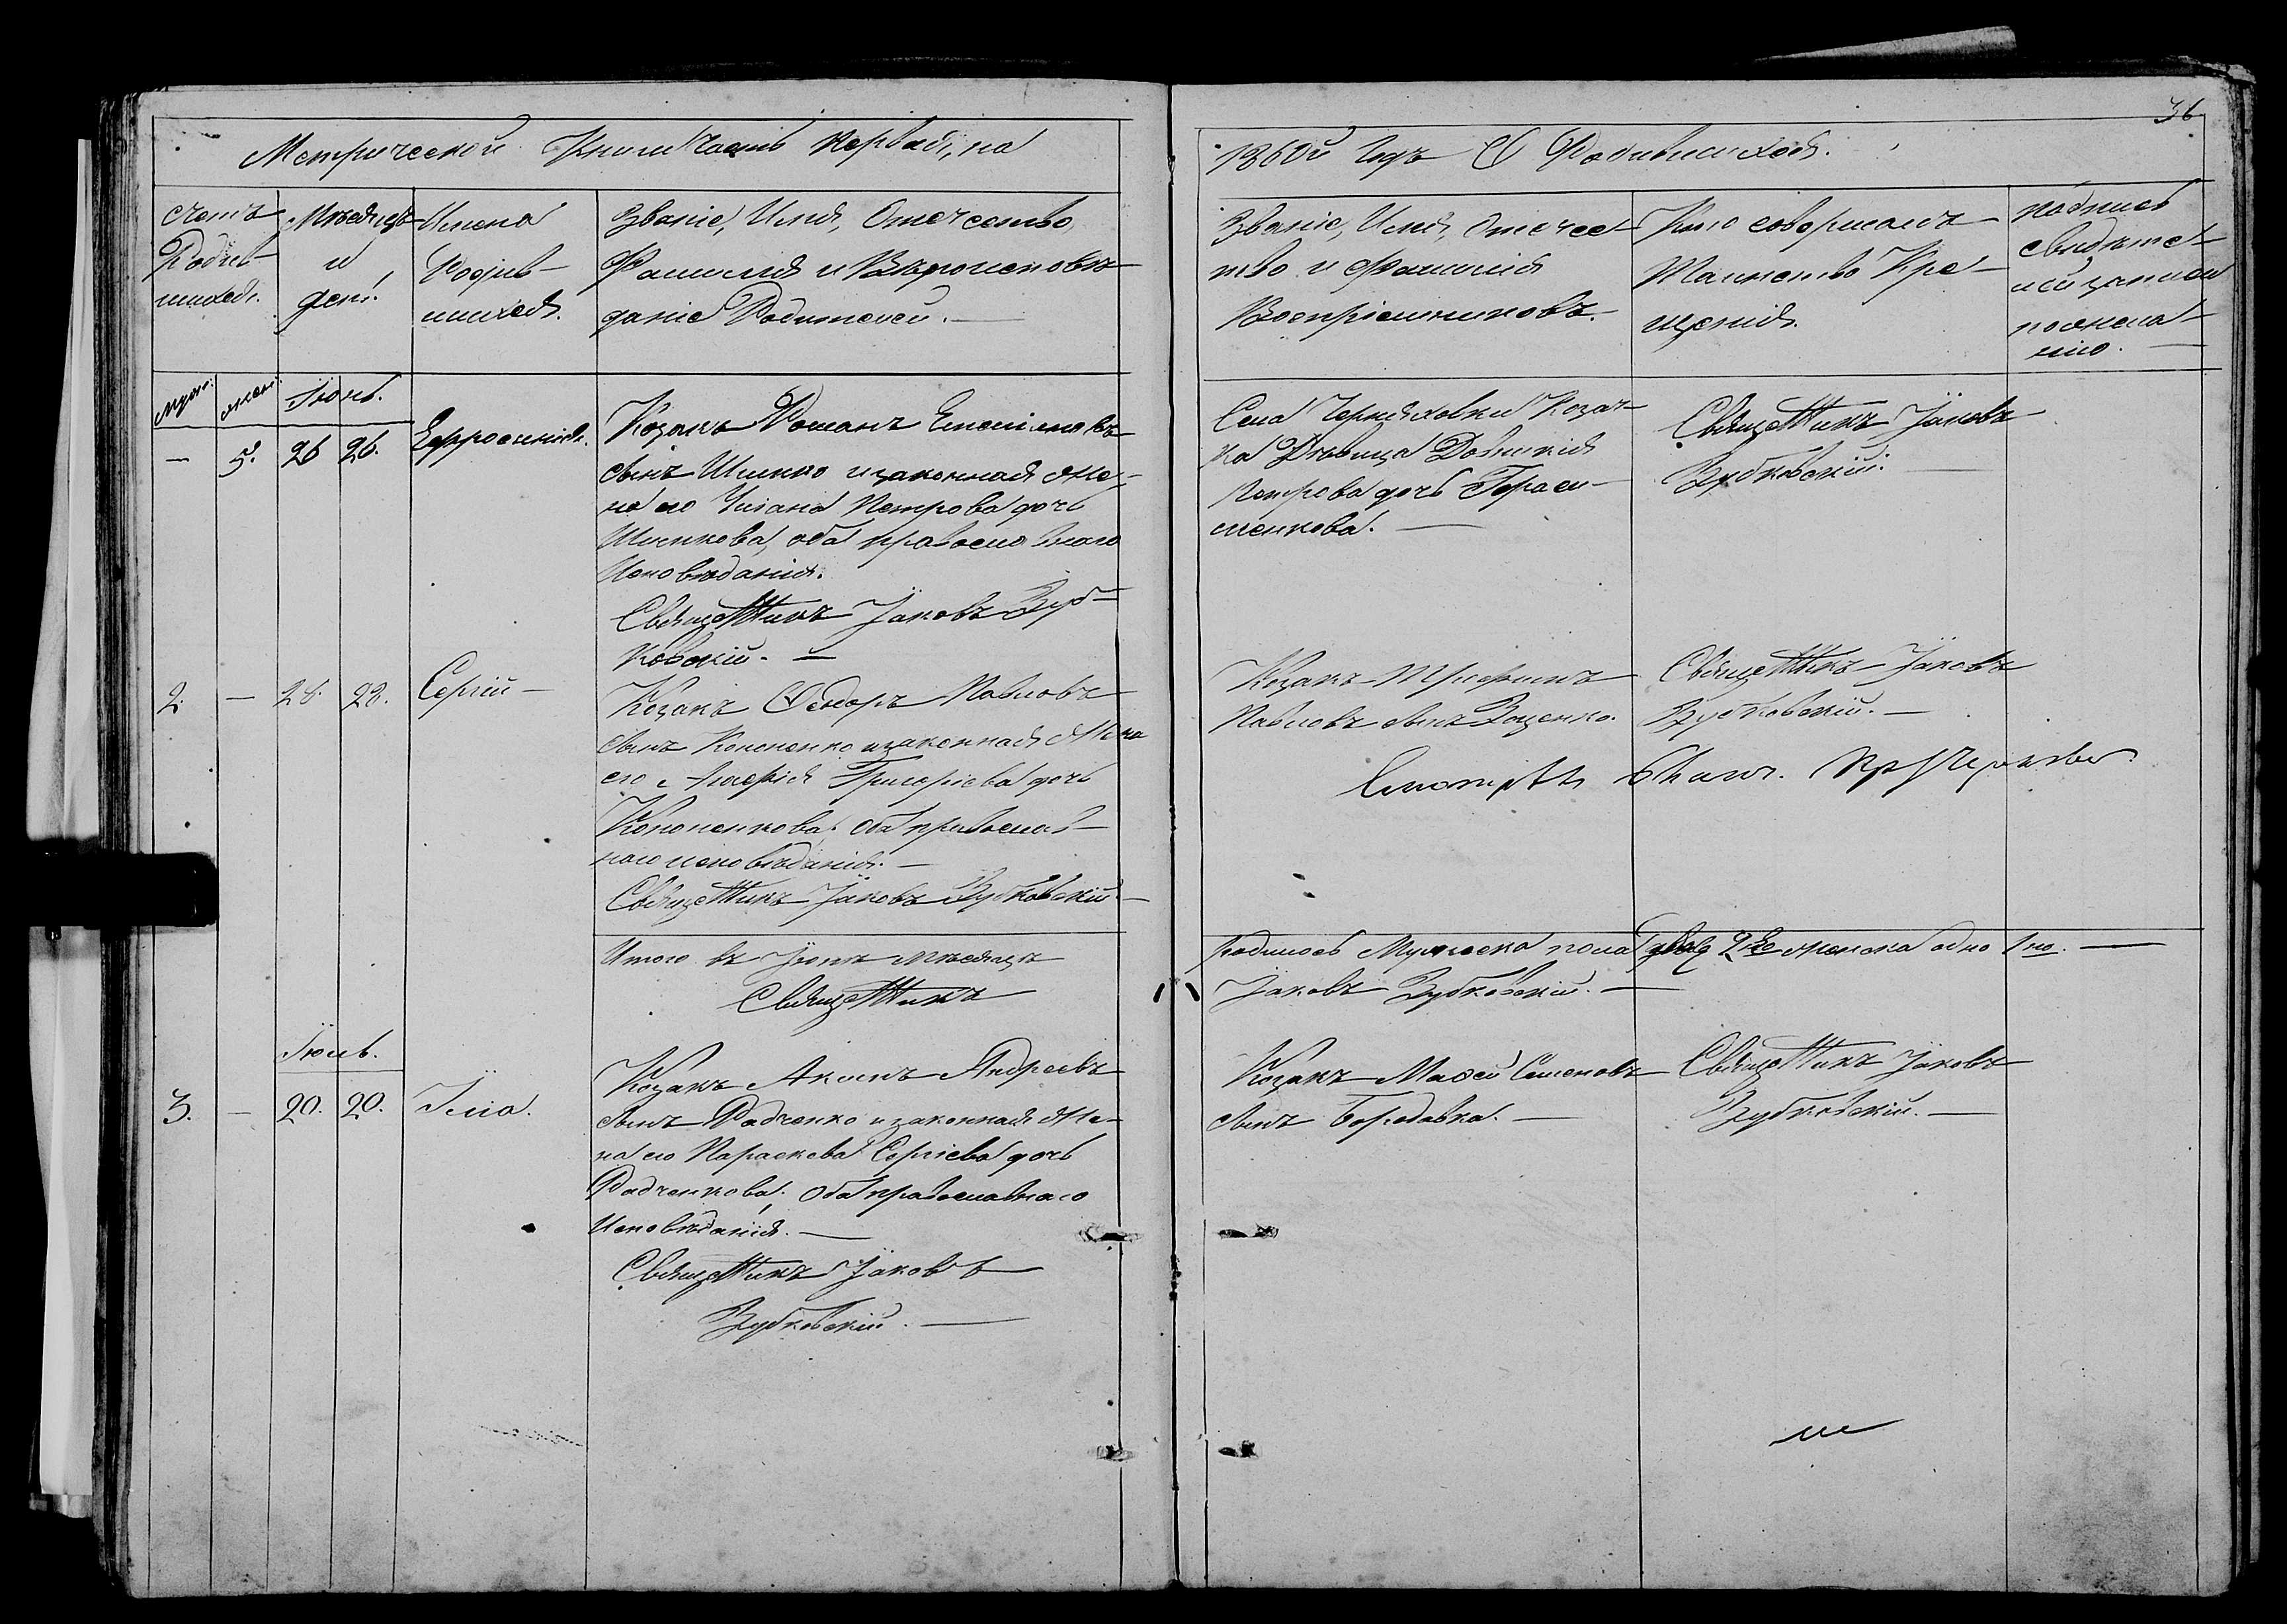 36
Метрической Книги Часть Первая, на
1860й Годъ О Родившихся.
счетъ
Родив-
шихся.
Мѣсяцъ
и
день.
Имена
Родив-
шихся.
Званіе, Имя, Отечество,
Фамилія и Вѣроисповѣ-
даніе Родителей. —
Званіе, Имя, Отечес-
тво и Фамилія
Воспріемниковъ. —
Кто совершалъ
Таинство Кре-
щенія.
подпись
свидѣте-
лей записи
по желанію. —
муж. жен. Іюнь.
— 5. 26 26. Ефросинія.
Козакъ Романъ
сынъ Шишко и законная же-
на его Уліана Петрова дочь
Шишкова, оба православнаго
Исповѣданія.
Священникъ Іаковъ Зуб-
ковскій. —
Села Черняховки Козач-
ка Дѣвица Домникія
Петрова дочь Гераси-
менкова. —
Священникъ Іаковъ
Зубковскій. —
2. — 28. 28. Сергій —
Козакъ Ѳеодоръ Павловъ
сынъ Кононенко и законная жена
его Агафія Григоріева дочь
Кононенкова, оба православ-
наго исповѣданія. —
Священникъ Іаковъ Зубковскій —
Козакъ Трофимъ
Павловъ сынъ Зоценко.
Священникъ Іаковъ
Зубковскій. —
Итого въ Іюнѣ мѣсяцѣ
Священникъ
родилось Мужеска пола два 2ва женска одно 1но. —
Іаковъ Зубковскій. —
Іюль.
3. — 20. 20. Илія.
Козакъ Акимъ Андреевъ
сынъ Радченко и законная же-
на его Параскева Сергіева дочь
Радченкова, оба православнаго
Исповѣданія. —
Священникъ Іаковъ
Зубковскій. —
Козакъ Моѵсей Семеновъ
сынъ Бородавка. —
Священникъ Іаковъ
Зубковскій. —